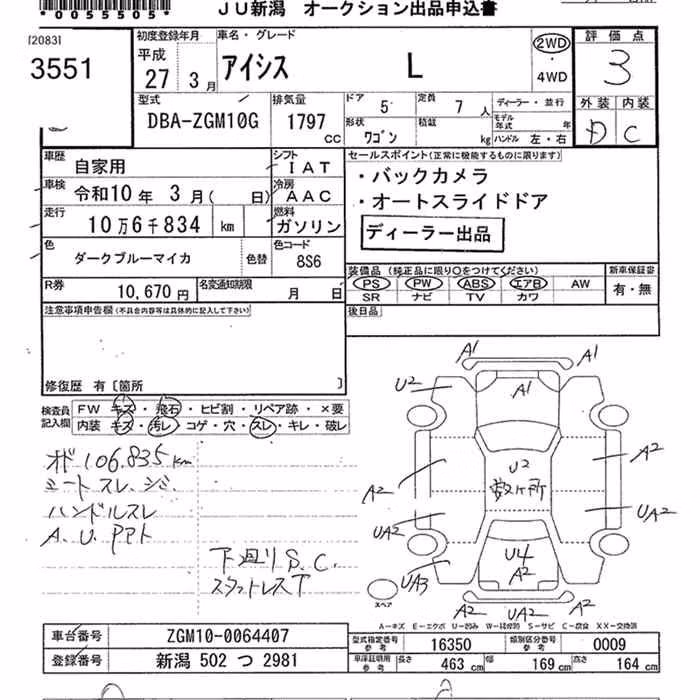 *0055505*
JU新潟 オークション出品申込書
[2083]
3551
初度登録年月
平成
27 3月
車名・グレード
アイシス L
2WD
・
4WD
評価点
3
外装 内装
D C
型式
DBA-ZGM10G
排気量
1797 cc
ドア 5
定員 7 人
形状 ワゴン
積載 kg
ディーラー・並行
モデル年式 年
ハンドル 左・右
車歴 自家用
シフト IAT
車検 令和10年 3月( 日)
冷房 AAC
走行 10万6千834 km
燃料 ガソリン
色 ダークブルーマイカ 色替
色コード 8S6
R券 10,670円
名変通知期限 月 日
セールスポイント(正常に機能するものに限ります)
・バックカメラ
・オートスライドドア
ディーラー出品
装備品 (純正品に限り○をつけてください)
PS PW ABS エアB AW
SR ナビ TV カワ
新車保証書
有・無
後日品
注意事項申告欄(不具合内容等は具体的に記入して下さい)
修復歴 有〔箇所 〕
検査員記入欄
FW キズ・飛石・ヒビ割・リペア跡・×要
内装 キズ・汚レ・コゲ・穴・スレ・キレ・破レ
106,835km
シートスレ、シミ
ハンドルスレ
A.U.PPT
下廻りS.C.
スタットレスT
A1 A1
U2 A1
A2 U2 A2
数ヶ所
UA2 UA2
U4
UA3 A2
A2 UA2 A2
スペア
A-キズ E-エクボ U-凹み W-補修跡 S-サビ C-腐食 XX-交換済
車台番号 ZGM10-0064407
登録番号 新潟 502 つ 2981
型式指定番号 参考 16350
類別区分番号 参考 0009
車庫証明用 参考
長さ 463 cm 幅 169 cm 高さ 164 cm